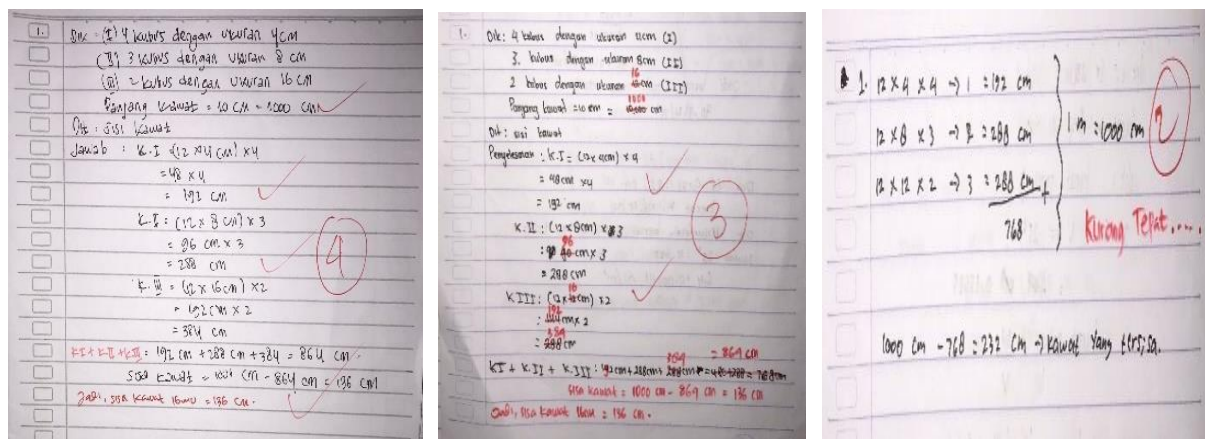 1. Dik : (I) 4 kubus dengan ukuran 4cm
(II) 3 kubus dengan ukuran 8 cm
(III) 2 kubus dengan ukuran 16 cm
Panjang kawat = 10 cm = 1000 cm
Dit : sisi kawat
Jawab : K.I = (12 x 4 cm) x 4
= 48 x 4
= 192 cm
K.II : (12 x 8 cm) x 3
= 96 cm x 3
= 288 cm
K.III = (12 x 16 cm) x 2
= 192 cm x 2
= 384 cm
KI + KII + KIII = 192 cm + 288 cm + 384 = 864 cm
Sisa kawat = 1000 cm - 864 cm = 136 cm
Jadi, sisa kawat Ibmu = 136 cm.
4
1. Dik : 4 kubus dengan ukuran 4cm (I)
3 kubus dengan ukuran 8cm (II)
2 kubus dengan ukuran 16 cm (III)
Panjang kawat = 10 cm = 1000 cm
Dit : sisi kawat
Penyelesaian : K.I = (12 x 4cm) x 4
= 48cm x 4
= 192 cm
K.II : (12 x 8cm) x 3
: 96 cm x 3
= 288 cm
KIII : (12 x 16 cm) x 2
: 192 cm x 2
= 384 cm
KI + K.II + K.III : 192 cm + 288 cm + 384 = 864 cm
Sisa kawat = 1000 cm - 864 cm = 136 cm
Jadi, sisa kawat Ibmu = 136 cm.
3
1. 12 x 4 x 4 → 1 = 192 cm
12 x 8 x 3 → 2 = 288 cm
1 m = 1000 cm
12 x 12 x 2 → 3 = 288 cm +
768
2
Kurang Tepat....
1000 cm - 768 = 232 cm → kawat yang tersisa.